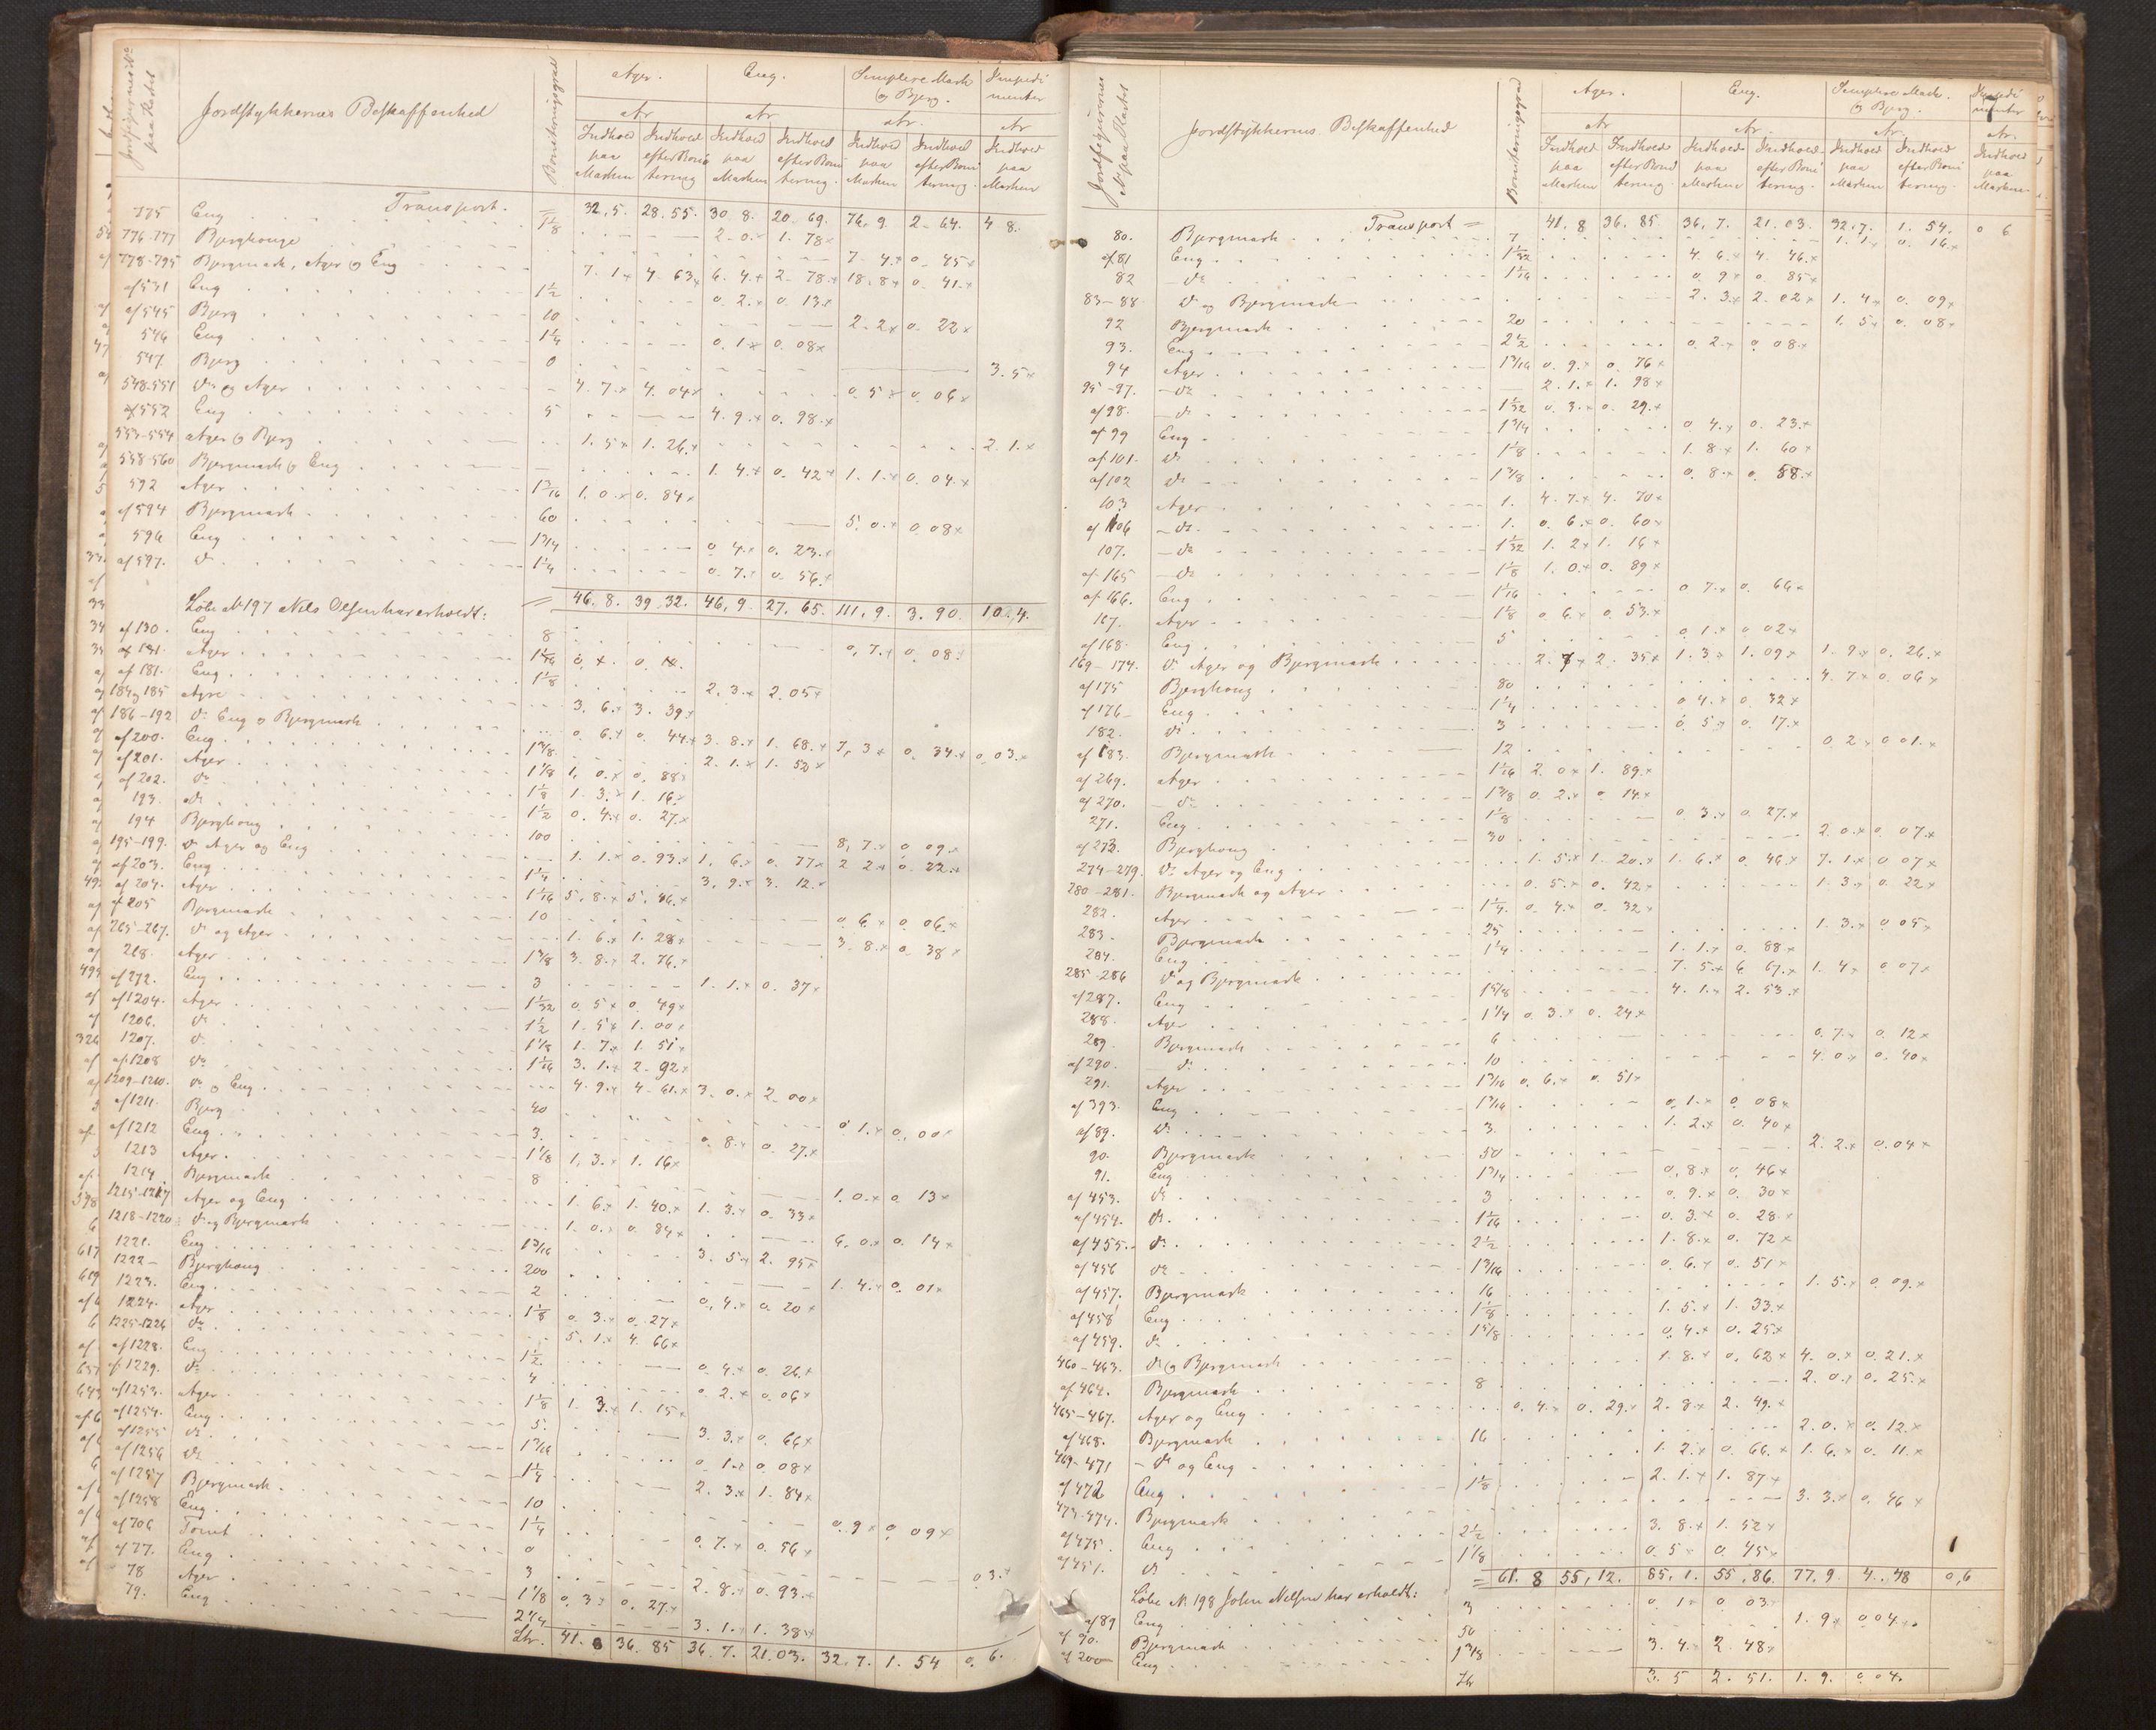 Jordstykkernes Beskaffenhed
Boniteringsgrad
Ager. Eng. Simplere Mark Impedi
og Bjerg. menter
Ar Ar Ar. Ar
Indhold Indhold Indhold Indhold Indhold Indhold Indhold
paa efter Boni paa efter Boni paa efter Boni paa
Marken tering Marken tering. Marken tering. Marken
Transport. = 32,5. 28.55. 30 8. 20 69. 76. 9. 2 64. 4 8.
775 Eng 1 1/8 2. 0. × 1. 78 ×
776-777 Bjerghouge 7 4. × 0 45 ×
778-795 Bjergmark, Ager og Eng 7. 1 × 4 63 × 6. 4. × 2 78. × 18. 8 × 0 41. ×
af 531 Eng 1 1/2 0 2. × 0. 13 ×
af 545 Bjerg 10 2. 2 × 0. 22 ×
546 Eng 1 1/4 0. 1 × 0. 08 ×
547. Bjerg 0 3. 5 ×
548-551 do og Ager 4. 7. × 4. 04 × 0. 5 × 0. 06 ×
af 552 Eng 5 4. 9. × 0. 98. ×
553-554 Ager og Bjerg 1. 5 × 1. 26. × 2. 1. ×
558-560 Bjergmark og Eng 1. 4. × 0. 42 × 1. 1. × 0. 04. ×
592 Ager 1 3/16 1. 0. × 0. 84 ×
af 594 Bjergmark 60 5. 0. × 0. 08 ×
596 Eng 1 3/4 0 4. × 0. 23. ×
af 597. do 1 1/4 0. 7. × 0. 56. ×
Löbe No 197 Nils Olsen har erholdt: = 46. 8. 39. 32. 46, 9. 27, 65. 111, 9. 3. 90. 10. 4.
af 130. Eng 8 0, 7. × 0. 08 ×
af 131. Ager 1 1/16
af 181. Eng 1 1/8 2. 3. × 2. 05 ×
184 og 185 Agre 3, 6. × 3. 39 ×
186-192 do Eng og Bjergmark 0. 6. × 0. 44 × 3. 8. × 1. 68. × 7, 3 × 0. 34. × 0, 03. ×
af 200. Eng 1 3/8 2. 1. × 1. 52 ×
af 201. Ager 1 1/8 1, 0. × 0, 88 ×
af 202. do 1 1/8 1. 3. × 1. 16 ×
193. do 1 1/2 0. 4. × 0. 27. ×
194 Bjerghoug 100 8, 7. × 0 09. ×
195-199. do Ager og Eng 1. 1. × 0. 93. × 1, 6. × 0. 77 × 2 2 × 0. 22. ×
af 203. Eng 1 1/4 3, 9. × 3. 12. ×
af 204. Ager 1 1/16 5, 8. × 5, 46. ×
af 205 Bjergmark 10 0 6 × 0. 06. ×
265-267. do og Ager 1. 6. × 1. 28 × 3. 8. × 0. 38 ×
268. Ager 1 3/8 3. 8. × 2. 76. ×
af 272. Eng 3 1. 1. × 0. 37 ×
af 1204. Ager 1 1/32 0. 5 × 0. 49 ×
1206. do 1 1/2 1. 5 × 1. 00 ×
1207. do 1 1/8 1. 7. × 1. 51 ×
af 1208 do 1 1/16 3. 1. × 2. 92 ×
1209-1210. do og Eng 4. 9. × 4 61. × 3. 0. × 2 00 ×
af 1211. Bjerg 40 0 1. × 0, 00 ×
af 1212 Eng 3. 0. 8. × 0. 27. ×
1213 Ager. 1 1/8 1, 3. × 1. 16 ×
1214 Bjergmark 8 1. 0. × 0. 13 ×
1215-1217 Ager og Eng 1. 6. × 1. 40. × 1. 3. × 0. 33 ×
1218-1220 do og Bjergmark 1. 0. × 0. 84 × 6, 0. × 0. 14 ×
1221. Eng 1 3/16 3. 5 × 2. 95 ×
1222 Bjerghoug 200 1. 4. × 0. 01 ×
1223. Eng. 2 0, 4. × 0. 20 ×
1224. Ager 1 1/8 0. 3. × 0. 27. ×
1225-1226 do 5. 1. × 4. 66 ×
af 1228. Eng 1 1/2 0. 4. × 0. 26. ×
af 1229. do 4 0. 2. × 0. 06 ×
af 1253. Ager 1 1/8 1. 3. × 1. 15 ×
af 1254. Eng 5. 3. 3. × 0. 66 ×
af 1255 do 1 3/16 0. 1. × 0. 08 ×
af 1256 do 1 1/4 2. 3. × 1. 84 ×
af 1257 Bjergmark. 10 0. 9 × 0 09 ×
af 1258 Eng. 1 1/4 0. 7. × 0. 56 ×
af 706 Tomt 0 0 3. ×
af 77. Eng 3 2. 8. × 0. 93. ×
78 Ager 1 1/8 0. 3 × 0. 27. ×
79. Eng 2 1/4 3. 1. × 1. 38 ×
Ltr. 41. 8 36. 85 36. 7. 21. 03. 32, 7. 1. 54 0. 6.
Jordfigurernes
No paa Kartet
Jordstykkernes Beskaffenhed
Boniteringsgrad
Ager. Eng. Simplere Mark. Impedi
og Bjerg. menter
Ar Ar. Ar. Ar.
Indhold Indhold Indhold Indhold Indhold Indhold Indhold
paa efter Boni paa efter Boni paa efter Boni paa
Marken tering. Marken tering. Marken tering. Marken
Transport = 41. 8 36. 85 36, 7. 21. 03. 32. 7. 1. 54. 0 6
80. Bjergmark 7 1. 1. × 0. 16. ×
af 81 Eng 1 1/32 4. 6. × 4. 46. ×
82 do 1 1/16 0. 9 × 0. 85 ×
83-88 do og Bjergmark 2. 3. × 2. 02 × 1. 4 × 0. 09 ×
92 Bjergmark 20 1. 5 × 0. 08 ×
93. Eng 2 1/2 0. 2. × 0 08. ×
94 Ager 1 3/16 0. 9. × 0. 76 ×
95-97. do 2. 1. × 1. 98 ×
af 98. do 1 1/32 0. 3. × 0. 29. ×
af 99 Eng 1 3/4 0 4. × 0. 23. ×
af 101. do 1 1/8 1. 8 × 1. 60 ×
af 102 do 1 3/8 0. 8. × 0. 58. ×
103 Ager 1. 4. 7. × 4. 70 ×
af 106 do 1. 0. 6. × 0. 60 ×
107. do 1 1/32 1. 2 × 1. 16 ×
af 165 do 1 1/8 1. 0. × 0. 89 ×
af 166. Eng 1 1/16 0 7. × 0. 66 ×
167. Ager 1 1/8 0 6. × 0 53. ×
af 168. Eng 5 0. 1. × 0. 02 ×
169-174. do Ager og Bjergmark 2. 7 × 2. 35 × 1. 3 × 1. 09 × 1. 9 × 0. 26. ×
af 175 Bjerghoug 80 4. 7 × 0. 06 ×
af 176 Eng 1 1/4 0 4. × 0. 32 ×
182. do 3 0. 5 × 0. 17. ×
af 183. Bjergmark 12 0. 2 × 0 01. ×
af 269. Ager 1 1/16 2. 0 × 1. 89. ×
af 270. do 1 3/8 0. 2. × 0. 14 ×
271. Eng 1 1/8 0. 3. × 0. 27. ×
af 273. Bjerghoug 30 2. 0. × 0. 07. ×
274-279. do Ager og Eng 1. 5. × 1. 20. × 1. 6. × 0. 46. × 7. 1. × 0 07 ×
280-281. Bjergmark og Ager 0. 5. × 0. 42 × 1. 3 × 0. 22 ×
282. Ager 1 1/4. 0. 4. × 0. 32 ×
283. Bjergmark 25 1. 3. × 0 05 ×
284. Eng 1 1/4 1. 1. × 0. 88 ×
285-286 do og Bjergmark 7. 5. × 6 67. × 1. 4 × 0 07 ×
af 287. Eng 1 5/8 4. 1. × 2. 53. ×
288. Ager 1 1/4 0. 3. × 0. 24 ×
289. Bjergmark 6 0. 7. × 0. 12 ×
af 290. do 10 4. 0. × 0. 40 ×
291. Ager 1 3/16 0. 6. × 0. 51 ×
af 393. Eng 1 3/16 0, 1. × 0 08 ×
af 89. do 3. 1. 2. × 0. 40 ×
90. Bjergmark 50 2. 2. × 0. 04 ×
91. Eng 1 3/4 0, 8. × 0, 46 ×
af 453. do 3 0. 9. × 0. 30 ×
af 454. do 1 1/16 0. 3. × 0. 28 ×
af 455. do 2 1/2 1. 8. × 0. 72 ×
af 456 do 1 3/16 0. 6. × 0. 51 ×
af 457. Bjergmark 16 1. 5. × 0. 09. ×
af 458 Eng 1 1/8 1. 5. × 1. 33. ×
af 459. do 1 5/8 0. 4. × 0. 25 ×
460-463. do og Bjergmark 1. 8. × 0, 62 × 4. 0. × 0. 21. ×
af 464. Bjergmark 8 2. 0. × 0. 25. ×
465-467. Ager og Eng 0. 4. × 0. 29. × 2. 8 × 2. 49. ×
af 468. Bjergmark 16 2. 0. × 0. 12. ×
469-471 do og Eng 1. 2. × 0. 66. × 1. 6. × 0. 11. ×
af 472 Eng 1 1/8 2. 1. × 1. 87 ×
473-474. Bjergmark 3. 3. × 0. 46 ×
af 475. Eng 2 1/2 3. 8. × 1. 52 ×
af 451. do 1 1/8 0. 5 × 0. 45 ×
= 61. 8 55, 12. 85, 1. 55. 86. 77. 9. 4. 48 0, 6
Löbe No 198 John Nilsen har erholdt:
af 89 Eng 3 0. 1 × 0 03.
af 90. Bjergmark 50 1. 9 × 0 04. ×
af 200 Eng 1 3/8 3. 4. × 2. 48 ×
3. 5 2. 51. 1. 9. 0 04.